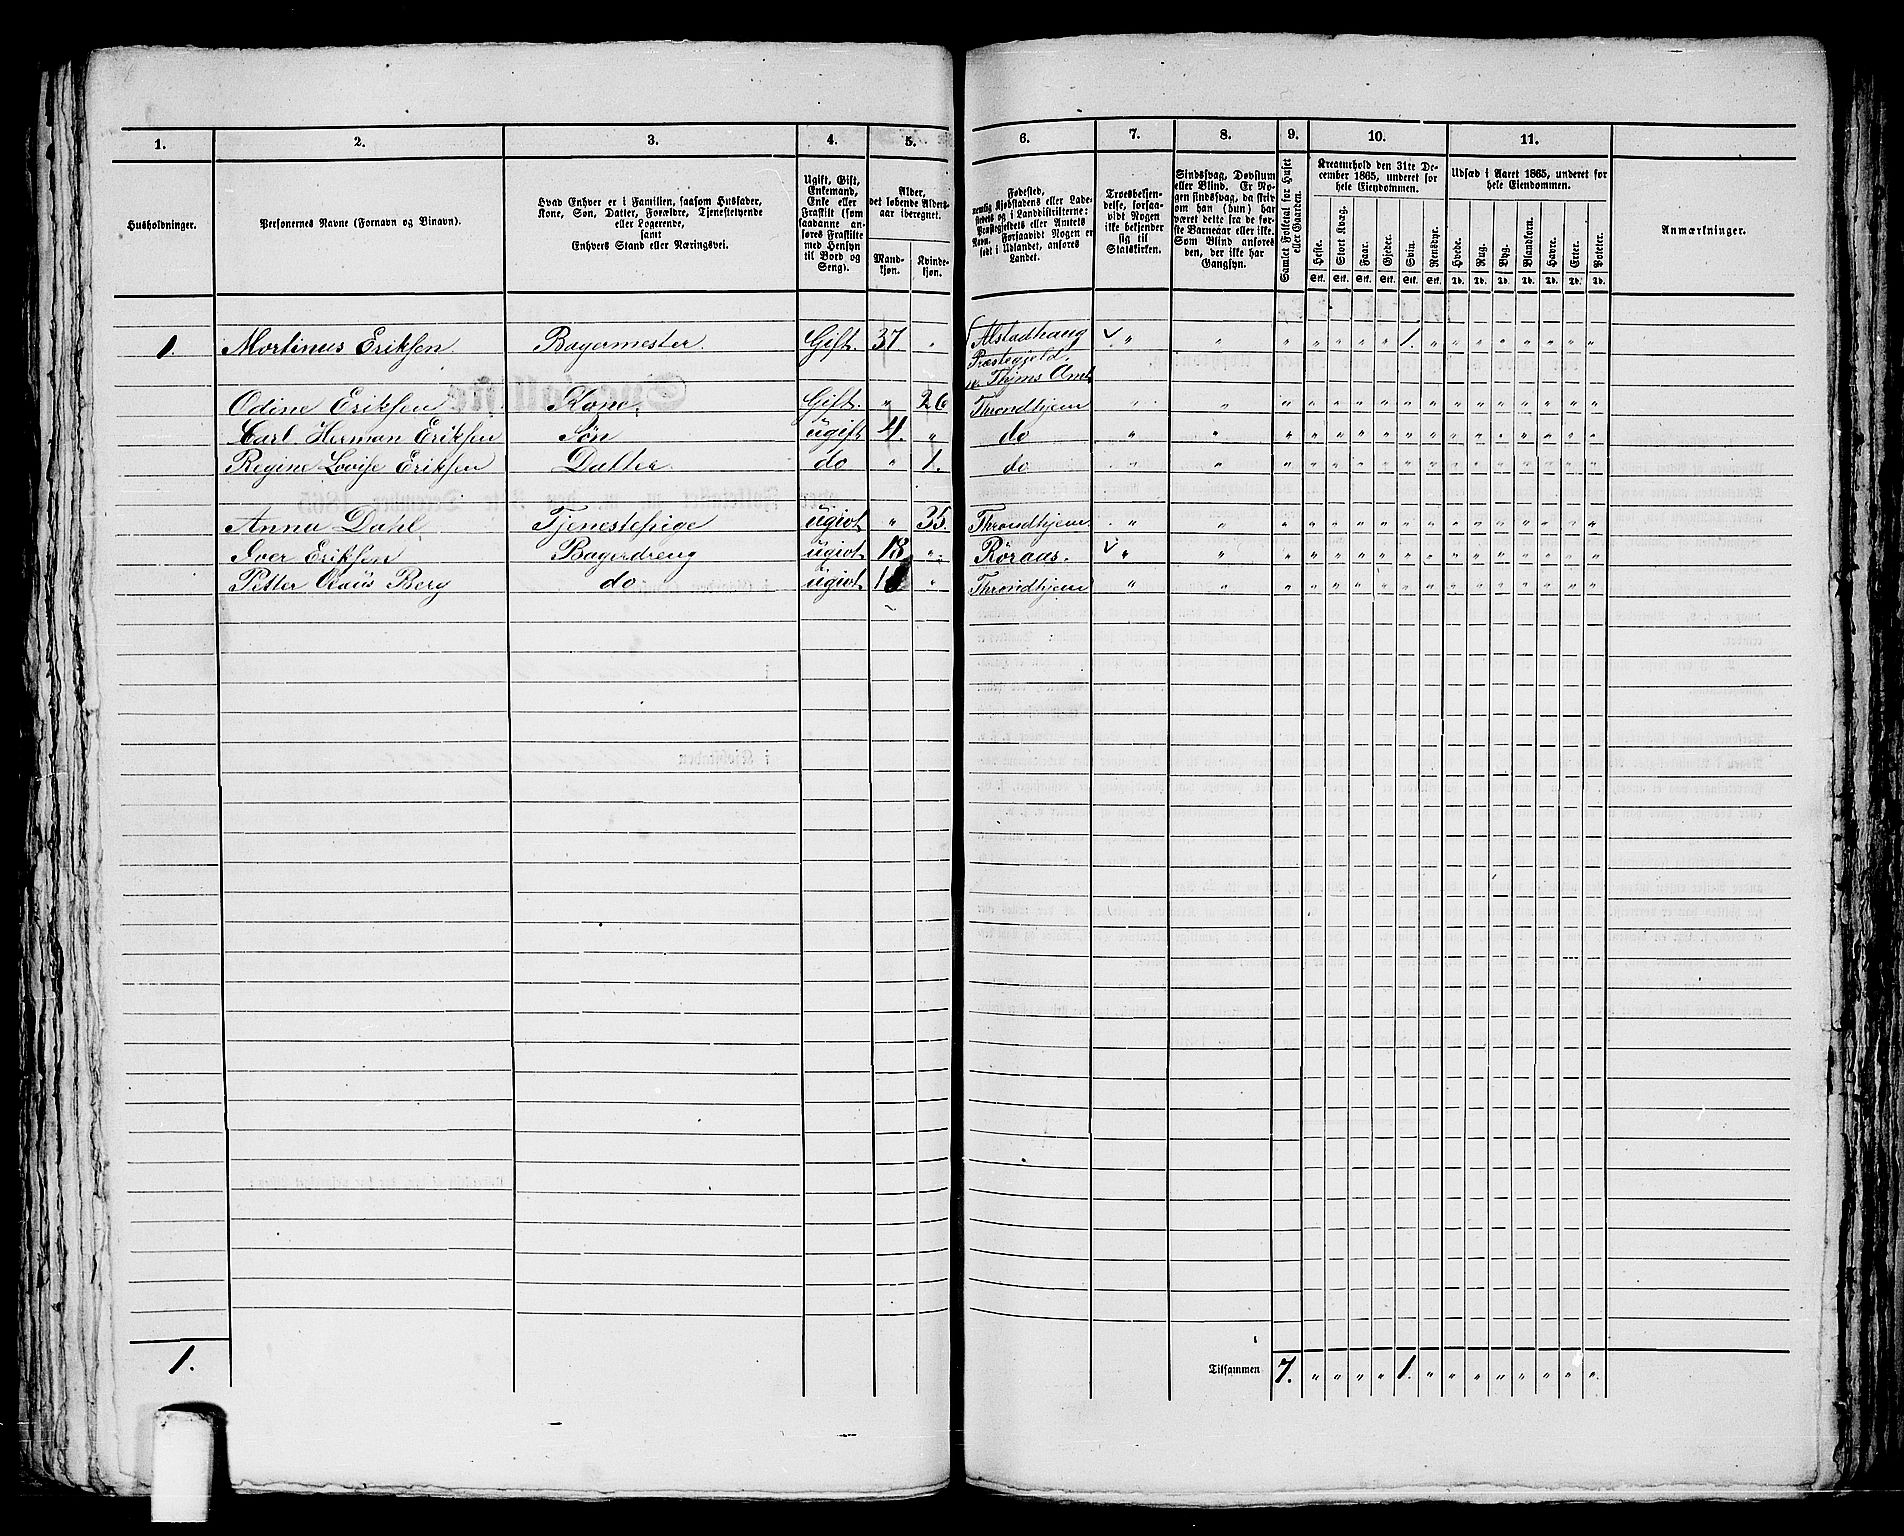 1. 2. 3. 4. 5. 6. 7. 8. 9. 10. 11.
Husholdninger.
Personernes Navne (Fornavn og Binavn).
Hvad Enhver er i Familien, saasom Husfader,
Kone, Søn, Datter, Forældre, Tjenestetyende
eller Logerende,
samt
Enhvers Stand eller Næringsvei.
Ugift, Gift,
Enkemand,
Enke eller
Fraskilt (som
saadanne an-
føres Fraskilte
med Hensyn
til Bord og
Seng).
Alder,
det løbende Alders-
aar iberegnet.
Mand-
kjøn.
Kvinde-
kjøn.
Fødested,
nemlig Kjøbstadens eller Lade-
stedets og i Landdistrikterne:
Præstegjeldets eller Amtets
Navn. Forsaavidt Nogen er
født i Udlandet, anføres
Landet.
Troesbekjen-
delse, forsaa-
vidt Nogen
ikke bekjender
sig til
Statskirken.
Sindssvag, Døvstum
eller Blind. Er No-
gen sindssvag, da skriv
om han (hun) har
været dette fra de før-
ste Barneaar eller ikke.
Som Blind anføres
den, der ikke har
Gangsyn.
Samlet Folketal for Huset
eller Gaarden.
Kreaturhold den 31te De-
cember 1865, underet for
hele Eiendommen.
Heste. Stort Kvæg. Faar. Gjeder. Svin. Rensdyr.
Stk. Stk. Stk. Stk. Stk. Stk.
Udsæd i Aaret 1865, underet for
hele Eiendommen.
Hvede. Rug. Byg. Blandkorn. Havre. Erter. Poteter.
Td. Td. Td. Td. Td. Td. Td.
Anmærkninger.
1. Mortinus Eriksen. Bagermester. Gift. 37 " Alstadhaug " " " " " " " 1. " " " " " " " "
Præstegjeld.
Thjms Amt
Odine Eriksen Kone. Gift. " 26 Throndhjem " " " " " " " " " " " " " " " "
Carl Herman Eriksen Søn ugift 4. " do " " " " " " " " " " " " " " " "
Regine Lovise Eriksen Datter do " 1. do " " " " " " " " " " " " " " " "
Anna Dahl Tjenestepige ugivt " 35. Throndhjem " " " " " " " " " " " " " " " "
Iver Eriksen Bagerdreng ugivt 18 " Røraas. " " " " " " " " " " " " " " " "
Petter Claus Berg do ugivt " Throndhjem " " " " " " " " " " " " " " " "
1.
Tilsammen 7. " " " " 1. " " " " " " " "